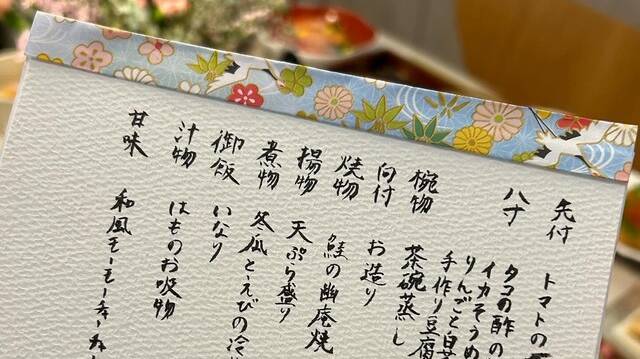 先付
トマトの
八寸
タコの酢の
イカそうめ
りんごと白
手作り豆腐
椀物
茶碗蒸し
向付
お造り
焼物
鮭の幽庵焼
揚物
天ぷら盛り
煮物
冬瓜とえびの冷
御飯
いなり
汁物
はものお吸物
甘味
和風モーモーチャーチャー